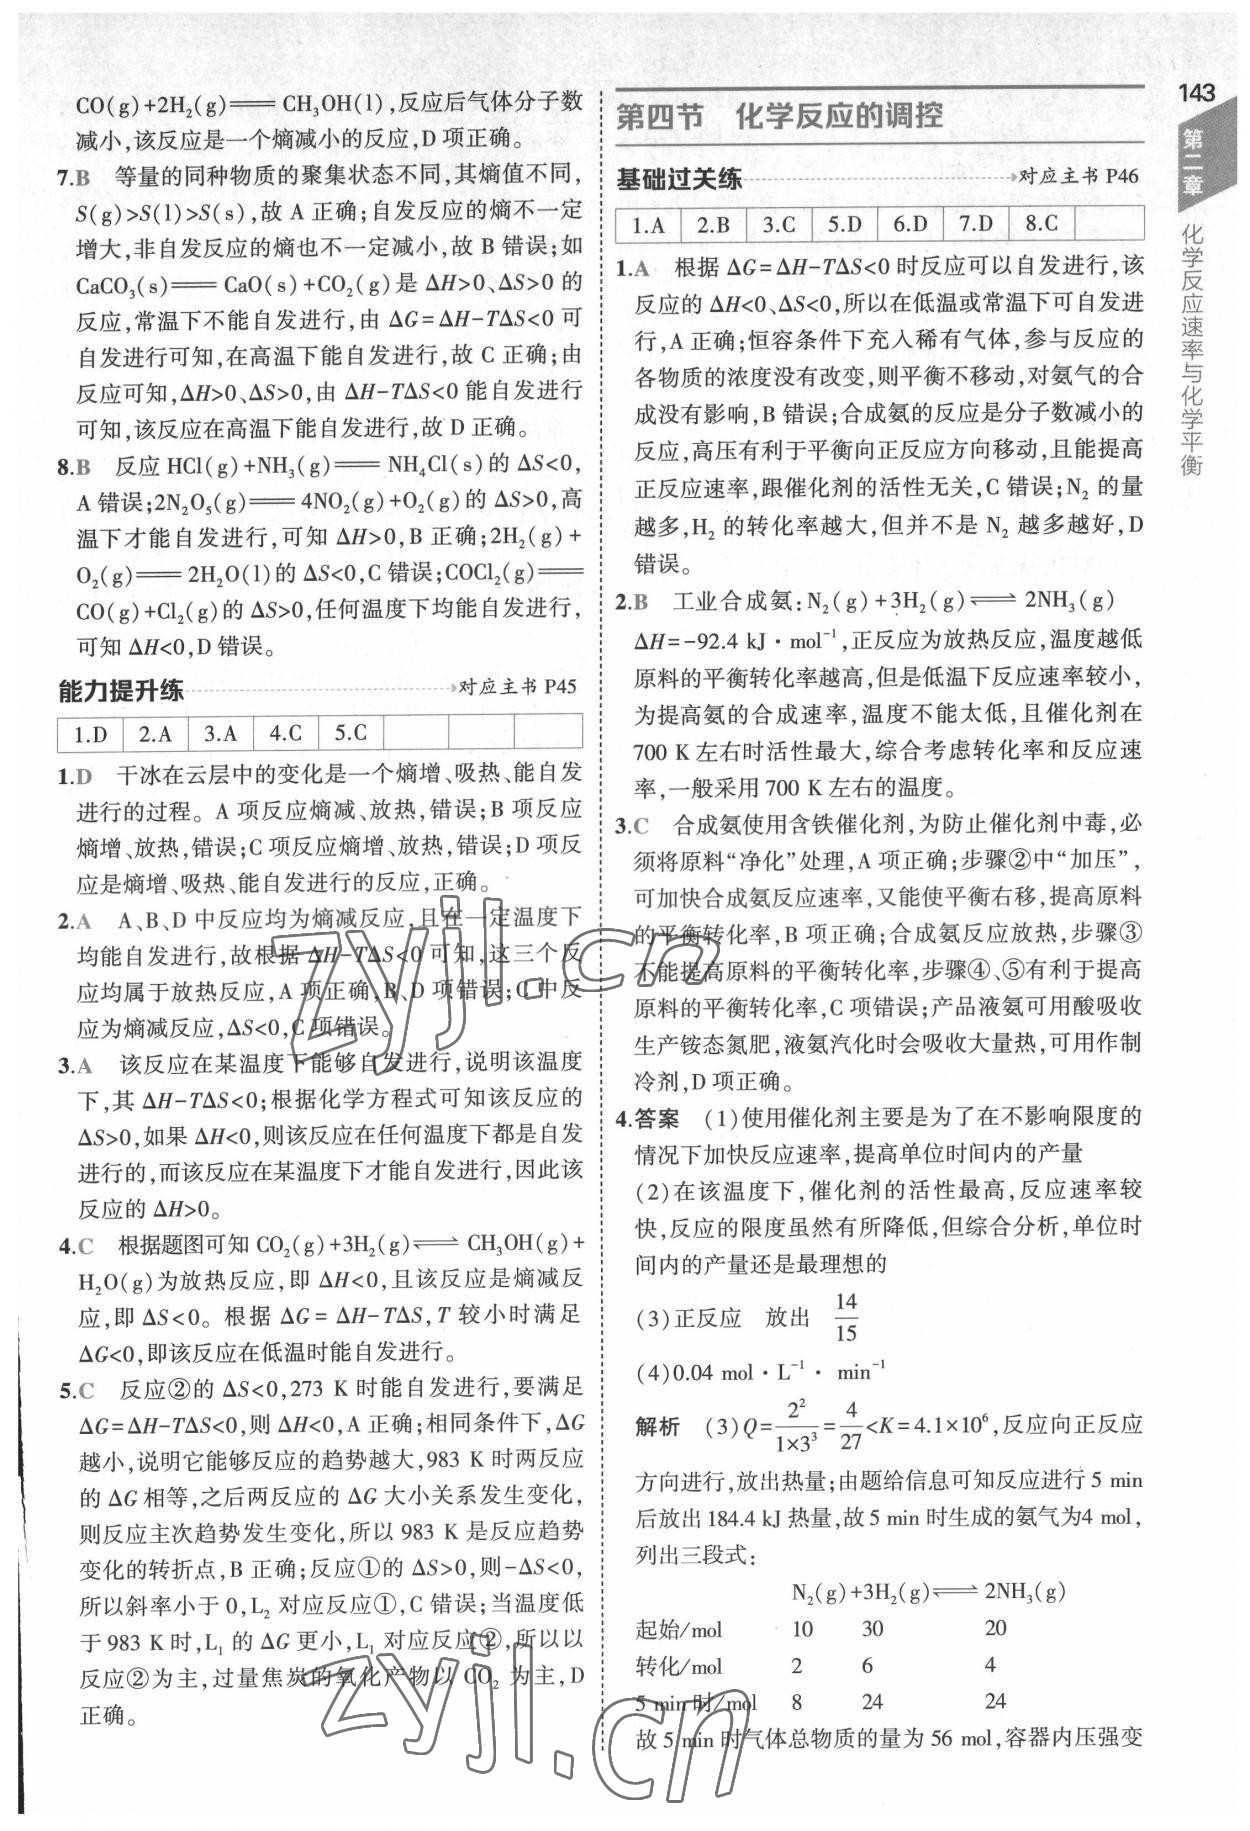 CO(g)+2H₂(g)═══CH₃OH(l),反应后气体分子数
减小,该反应是一个熵减小的反应,D 项正确。
7.B 等量的同种物质的聚集状态不同,其熵值不同,
S(g)>S(l)>S(s),故 A 正确;自发反应的熵不一定
增大,非自发反应的熵也不一定减小,故 B 错误;如
CaCO₃(s)═══CaO(s)+CO₂(g)是 ΔH>0、ΔS>0 的
反应,常温下不能自发进行,由 ΔG=ΔH-TΔS<0 可
自发进行可知,在高温下能自发进行,故 C 正确;由
反应可知,ΔH>0、ΔS>0,由 ΔH-TΔS<0 能自发进行
可知,该反应在高温下能自发进行,故 D 正确。
8.B 反应 HCl(g)+NH₃(g)═══NH₄Cl(s)的 ΔS<0,
A 错误;2N₂O₅(g)═══4NO₂(g)+O₂(g)的 ΔS>0,高
温下才能自发进行,可知 ΔH>0,B 正确;2H₂(g)+
O₂(g)═══2H₂O(l)的 ΔS<0,C 错误;COCl₂(g)═══
CO(g)+Cl₂(g)的 ΔS>0,任何温度下均能自发进行,
可知 ΔH<0,D 错误。
能力提升练 对应主书 P45
1.D 2.A 3.A 4.C 5.C
1.D 干冰在云层中的变化是一个熵增、吸热、能自发
进行的过程。A 项反应熵减、放热,错误;B 项反应
熵增、放热,错误;C 项反应熵增、放热,错误;D 项反
应是熵增、吸热、能自发进行的反应,正确。
2.A A、B、D 中反应均为熵减反应,且在一定温度下
均能自发进行,故根据 ΔH-TΔS<0 可知,这三个反
应均属于放热反应,A 项正确,B、D 项错误;C 中反
应为熵减反应,ΔS<0,C 项错误。
3.A 该反应在某温度下能够自发进行,说明该温度
下,其 ΔH-TΔS<0;根据化学方程式可知该反应的
ΔS>0,如果 ΔH<0,则该反应在任何温度下都是自发
进行的,而该反应在某温度下才能自发进行,因此该
反应的 ΔH>0。
4.C 根据题图可知 CO₂(g)+3H₂(g)⇌CH₃OH(g)+
H₂O(g)为放热反应,即 ΔH<0,且该反应是熵减反
应,即 ΔS<0。根据 ΔG=ΔH-TΔS,T 较小时满足
ΔG<0,即该反应在低温时能自发进行。
5.C 反应②的 ΔS<0,273 K 时能自发进行,要满足
ΔG=ΔH-TΔS<0,则 ΔH<0,A 正确;相同条件下,ΔG
越小,说明它能够反应的趋势越大,983 K 时两反应
的 ΔG 相等,之后两反应的 ΔG 大小关系发生变化,
则反应主次趋势发生变化,所以 983 K 是反应趋势
变化的转折点,B 正确;反应①的 ΔS>0,则-ΔS<0,
所以斜率小于 0,L₂ 对应反应①,C 错误;当温度低
于 983 K 时,L₁ 的 ΔG 更小,L₁ 对应反应②,所以以
反应②为主,过量焦炭的氧化产物以 CO₂ 为主,D
正确。
第四节 化学反应的调控
基础过关练 对应主书 P46
1.A 2.B 3.C 5.D 6.D 7.D 8.C
1.A 根据 ΔG=ΔH-TΔS<0 时反应可以自发进行,该
反应的 ΔH<0、ΔS<0,所以在低温或常温下可自发进
行,A 正确;恒容条件下充入稀有气体,参与反应的
各物质的浓度没有改变,则平衡不移动,对氨气的合
成没有影响,B 错误;合成氨的反应是分子数减小的
反应,高压有利于平衡向正反应方向移动,且能提高
正反应速率,跟催化剂的活性无关,C 错误;N₂ 的量
越多,H₂ 的转化率越大,但并不是 N₂ 越多越好,D
错误。
2.B 工业合成氨:N₂(g)+3H₂(g)⇌2NH₃(g)
ΔH=-92.4 kJ·mol⁻¹,正反应为放热反应,温度越低
原料的平衡转化率越高,但是低温下反应速率较小,
为提高氨的合成速率,温度不能太低,且催化剂在
700 K 左右时活性最大,综合考虑转化率和反应速
率,一般采用 700 K 左右的温度。
3.C 合成氨使用含铁催化剂,为防止催化剂中毒,必
须将原料“净化”处理,A 项正确;步骤②中“加压”,
可加快合成氨反应速率,又能使平衡右移,提高原料
的平衡转化率,B 项正确;合成氨反应放热,步骤③
不能提高原料的平衡转化率,步骤④、⑤有利于提高
原料的平衡转化率,C 项错误;产品液氨可用酸吸收
生产铵态氮肥,液氨汽化时会吸收大量热,可用作制
冷剂,D 项正确。
4.答案 (1)使用催化剂主要是为了在不影响限度的
情况下加快反应速率,提高单位时间内的产量
(2)在该温度下,催化剂的活性最高,反应速率较
快,反应的限度虽然有所降低,但综合分析,单位时
间内的产量还是最理想的
(3)正反应 放出 14/15
(4)0.04 mol·L⁻¹·min⁻¹
解析 (3)Q=2²/(1×3³)=4/27<K=4.1×10⁶,反应向正反应
方向进行,放出热量;由题给信息可知反应进行 5 min
后放出 184.4 kJ 热量,故 5 min 时生成的氨气为4 mol,
列出三段式:
N₂(g)+3H₂(g)⇌2NH₃(g)
起始/mol 10 30 20
转化/mol 2 6 4
5 min时/mol 8 24 24
故 5 min 时气体总物质的量为 56 mol,容器内压强变
143
第二章
化学反应速率与化学平衡
zyjl.cn
zyjl.cn